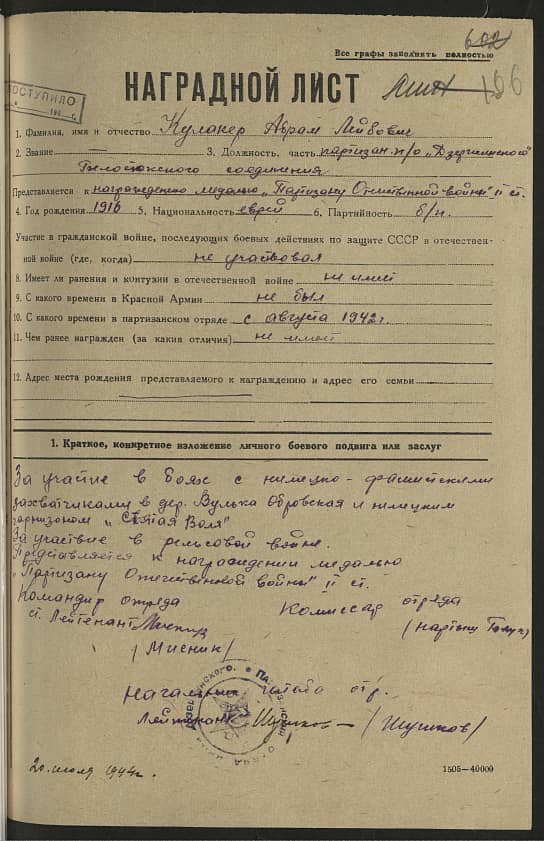 602
Все графы заполнять полностью
НАГРАДНОЙ ЛИСТ
196
ПОСТУПИЛО
1. Фамилия, имя и отчество Кулакер Абрам Лейбович
2. Звание — 3. Должность, часть партизан п/о „Дзержинского"
соединения
Представляется к награждению медалью „Партизану Отечественной войны" II ст.
4. Год рождения 1916 5. Национальность еврей 6. Партийность б/п.
Участие в гражданской войне, последующих боевых действиях по защите СССР в отечествен-
ной войне (где, когда) не участвовал
8. Имеет ли ранения и контузии в отечественной войне не имеет
9. С какого времени в Красной Армии не был
10. С какого времени в партизанском отряде с августа 1942 г.
11. Чем ранее награжден (за какия отличия) не имеет
12. Адрес места рождения представляемого к награждению и адрес его семьи
1. Краткое, конкретное изложение личного боевого подвига или заслуг
За участие в боях с немецко-фашистскими
захватчиками в дер. Вулька Обровская и немецким
гарнизоном „Святая Воля"
За участие в рельсовой войне.
Представляется к награждении медалью
„Партизану Отечественной войны" II ст.
Командир отряда
Комиссар отряда
ст. Лейтенант
(Мисник)
Начальник штаба отр.
Лейтенант
20 июля 1944 г.
1505—40000